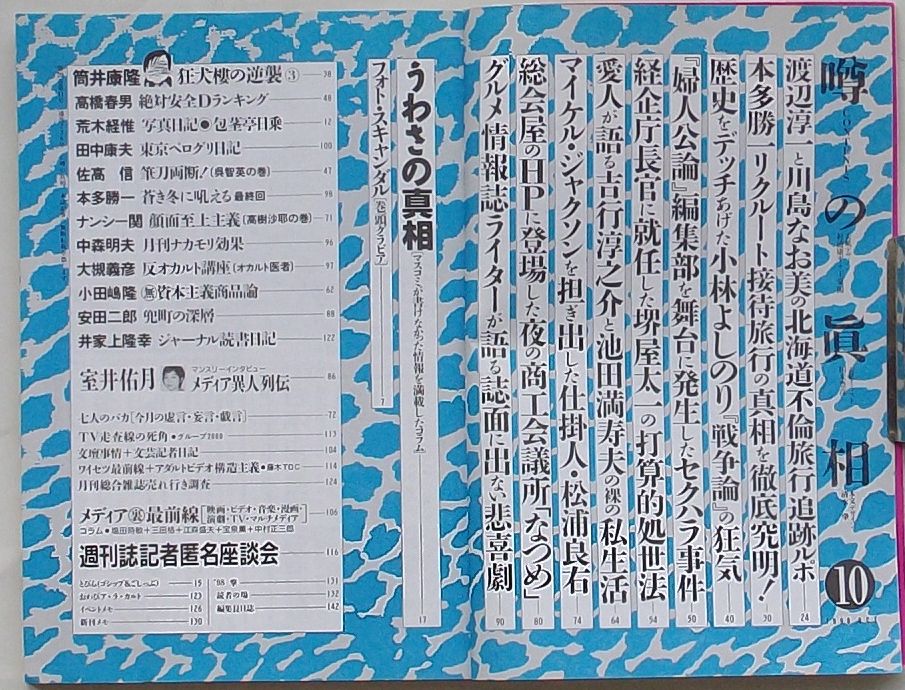 噂の眞相
CONTENTS
10
渡辺淳一と川島なお美の北海道不倫旅行追跡ルポ 24
本多勝一リクルート接待旅行の真相を徹底究明! 30
歴史をデッチあげた小林よしのり『戦争論』の狂気 40
『婦人公論』編集部を舞台に発生したセクハラ事件 50
経企庁長官に就任した堺屋太一の打算的処世法 54
愛人が語る吉行淳之介と池田満寿夫の裸の私生活 64
マイケル・ジャクソンを担ぎ出した仕掛人・松浦良右 74
総会屋のHPに登場した夜の商工会議所「なつめ」 80
グルメ情報誌ライターが語る誌面に出ない悲喜劇 90
うわさの真相 [マスコミが書けなかった情報を満載したコラム] 17
フォト・スキャンダル [巻頭グラビア] 7
筒井康隆 狂犬樓の逆襲③ 38
高橋春男 絶対安全Dランキング 48
荒木経惟 写真日記●包茎亭日乗 12
田中康夫 東京ペログリ日記 100
佐高信 筆刀両断!(呉智英の巻) 47
本多勝一 蒼き冬に吼える 最終回 98
ナンシー関 顔面至上主義(高樹沙耶の巻) 71
中森明夫 月刊ナカモリ効果 96
大槻義彦 反オカルト講座(オカルト医者) 97
小田嶋隆 無資本主義商品論 62
安田二郎 兜町の深層 88
井家上隆幸 ジャーナル読書日記 122
室井佑月 マンスリーインタビュー
メディア異人列伝 86
七人のバカ[今月の虚言・妄言・戯言] 72
TV走査線の死角●グループ2000 113
文壇事情+文芸記者日記 104
ワイセツ最前線+アダルトビデオ構造主義●藤木TDC 114
月刊総合雑誌売れ行き調査 124
メディア裏最前線[映画・ビデオ・音楽・漫画・演劇・TV・マルチメディア] 106
コラム●塩田時敏+三田格+江森盛夫+宝泉薫+中村正三郎
週刊誌記者匿名座談会 116
とぴっ(ゴシップ&ごしっぷ) 15
おわびア・ラ・カルト 123
イベントメモ 126
新刊メモ 130
'98 撃 131
読者の場 132
編集長日誌 142